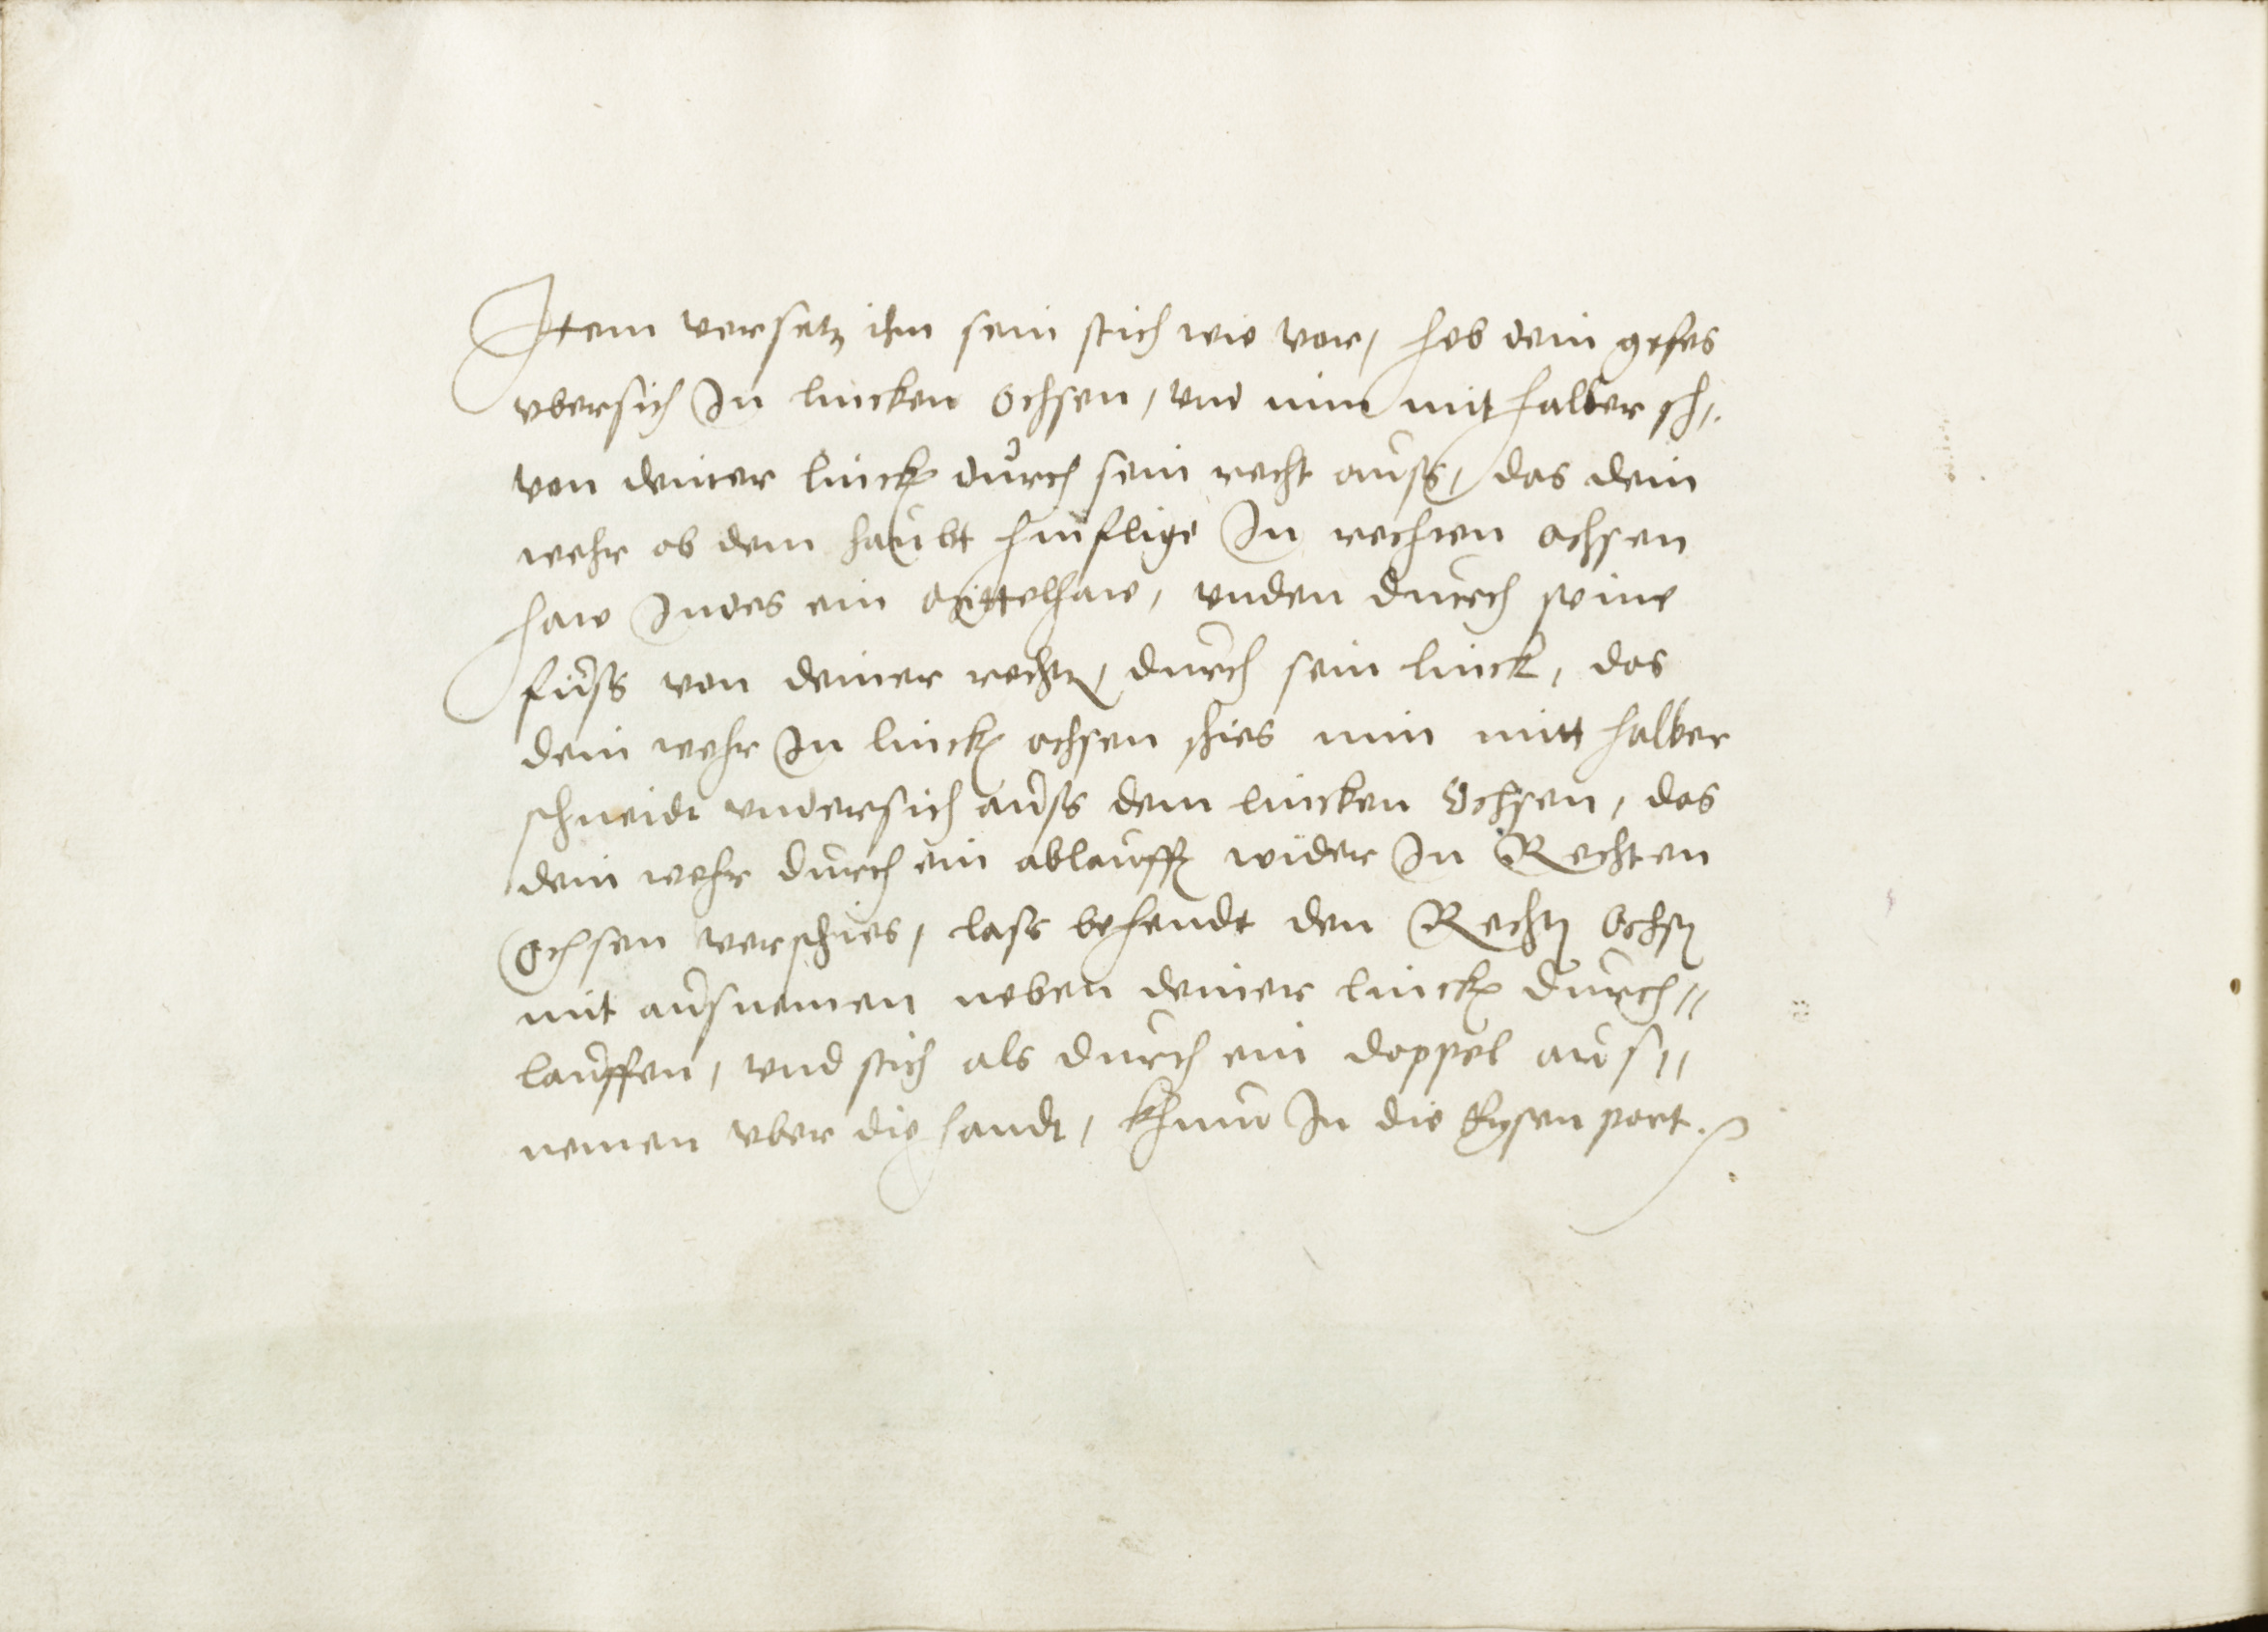 Item versetz ihm sein stich wie vor, heb dein gefes
vbersich In lincken Ochsen, vnd nim mit halber sch,.
von deiner linck durch sein recht auss, das dein
wehr ob dem haubt hinflige In rechten ochsen
haw Indes ein Mittelhaw, vnden durch seine
füss von deiner rechten, durch sein linck, das
dein wehr In lincken ochsen schies nim mitt halber
schneidt vndersich auss dem lincken Ochsen, das
dein wehr durch ein ablauffen wider In Rechten
Ochsen verschies, lass behendt den Rechten Ochsen
mit ausnemen neben deiner lincken durch,,
lauffen, vnd stich als durch ein doppel aus,,
nemen vber die handt, khum In die Eysen port.